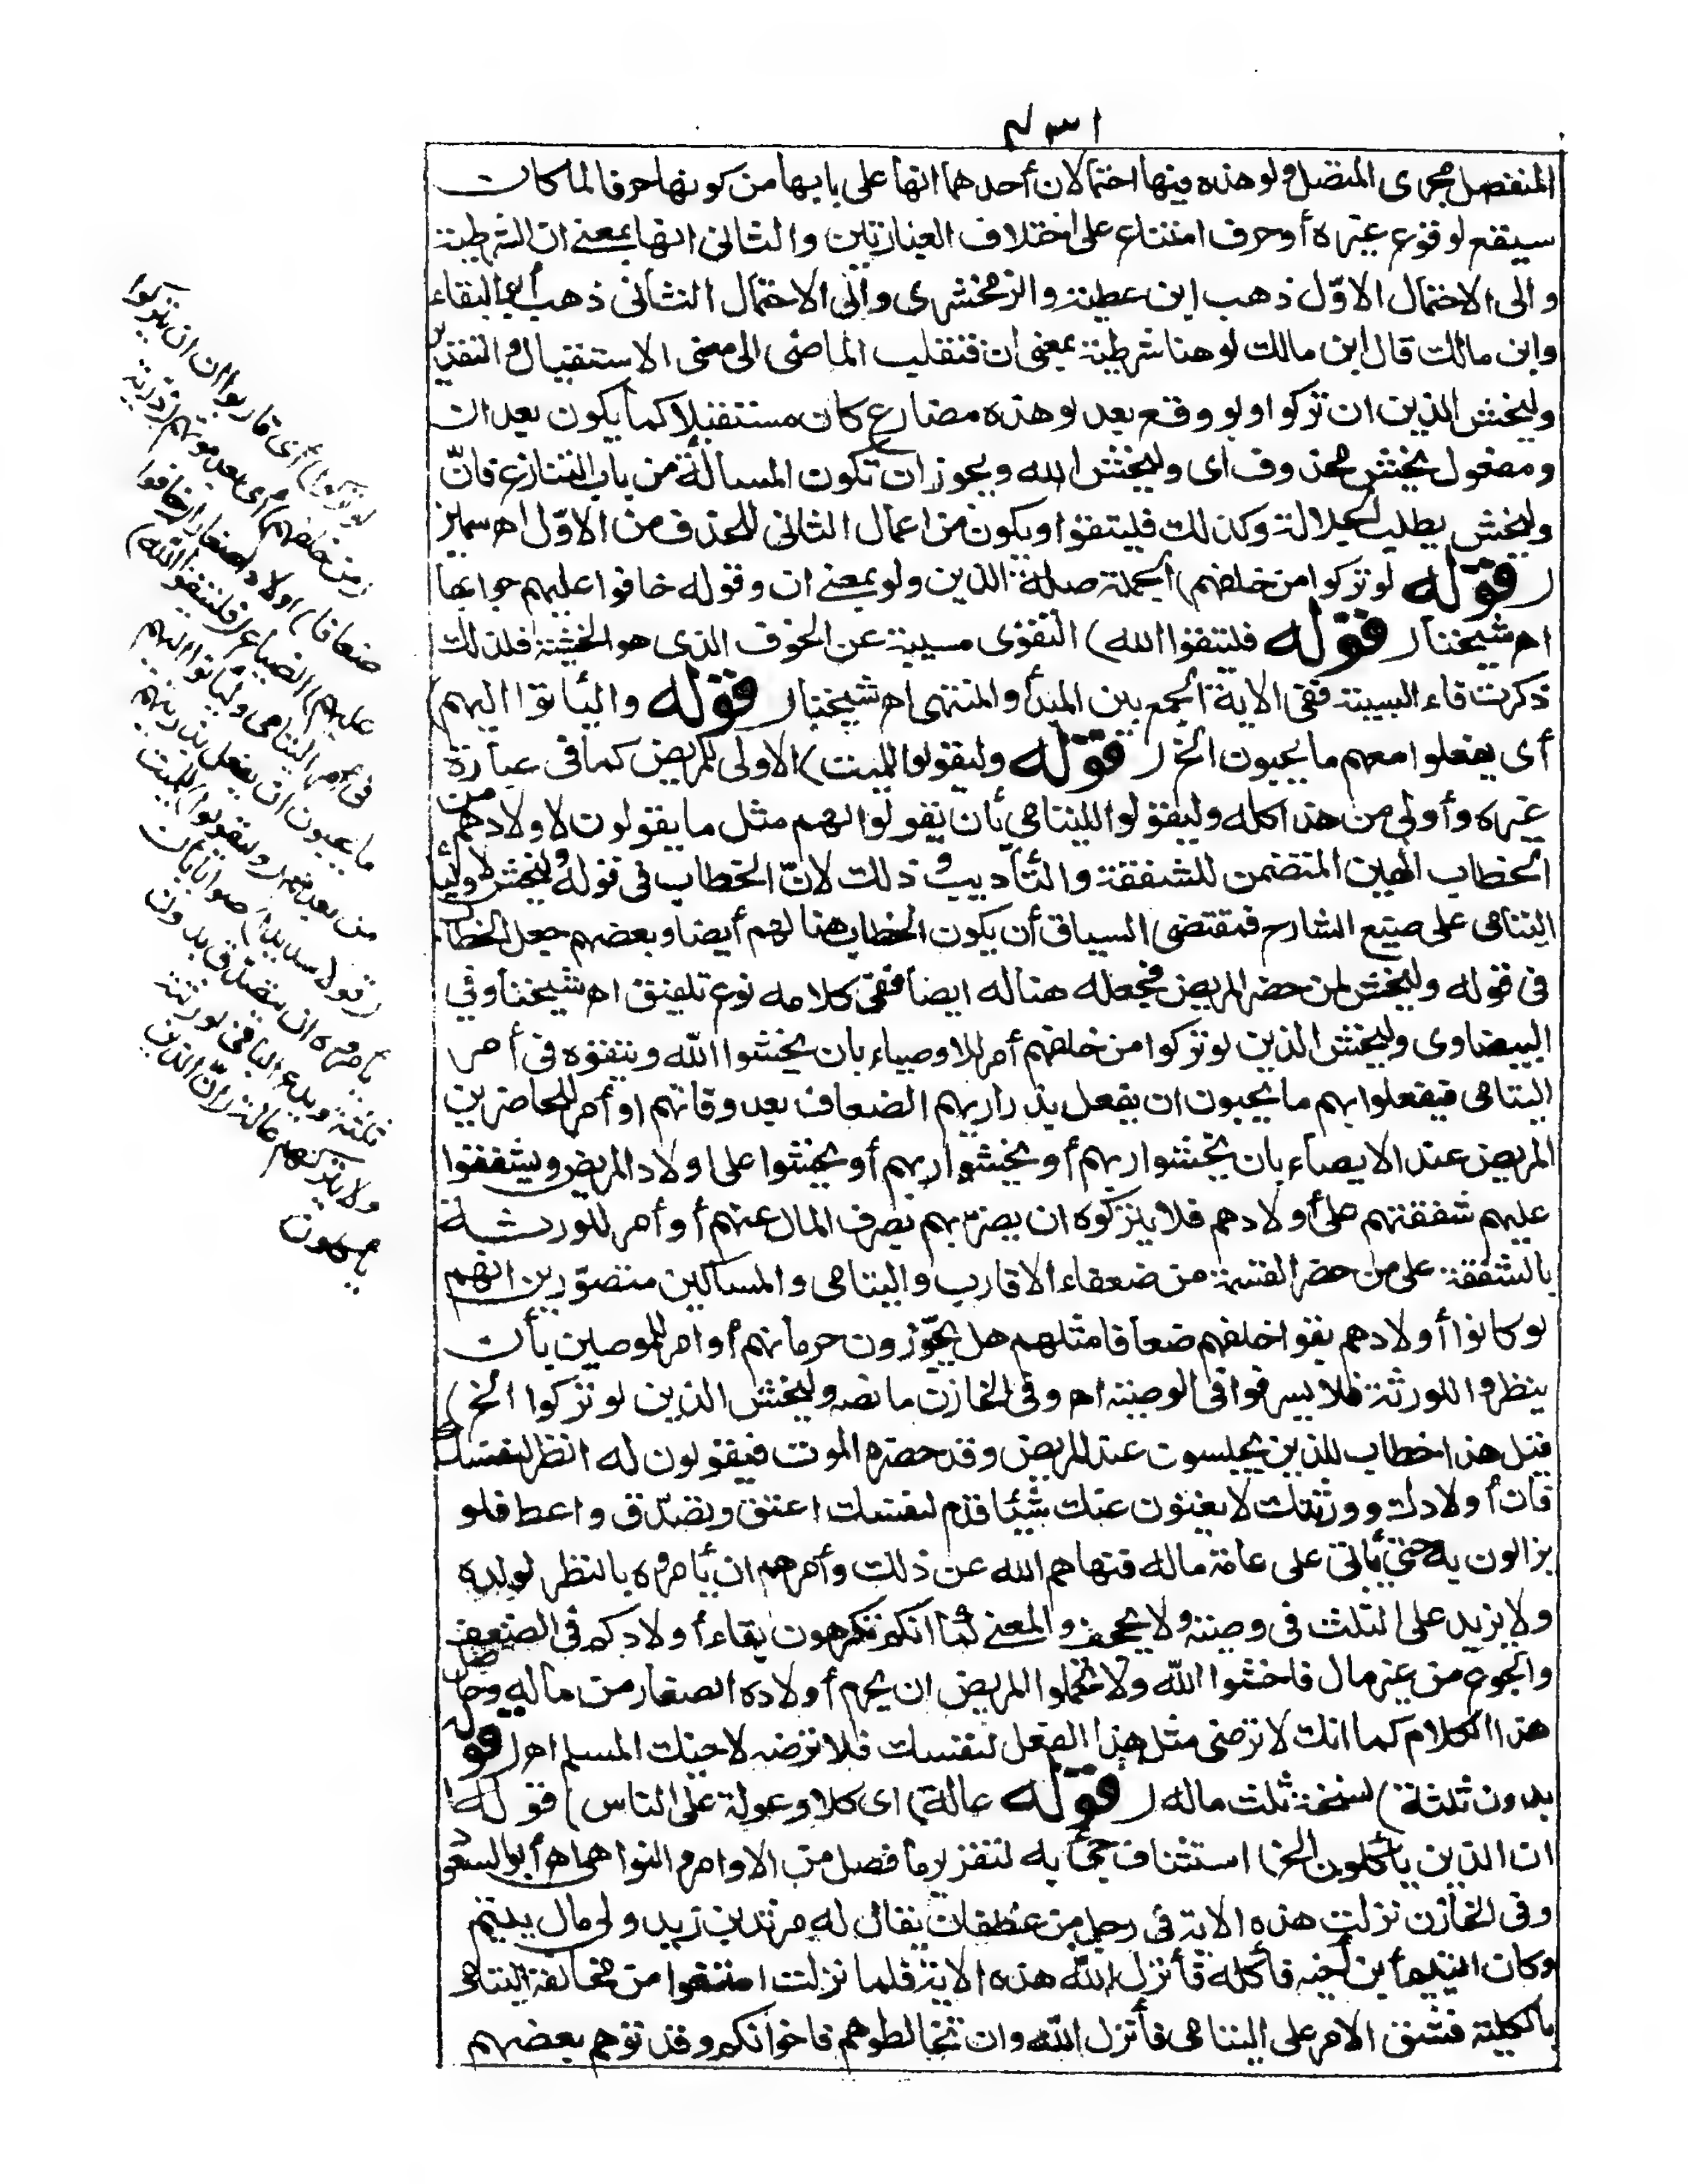 ٤٣١
المنفصل مجرى المتصل ولو هذه فيها احتمالان أحدهما انها على بابها من كونها حرفا لما كان
سيقع لوقوع غيره أو حرف امتناع على اختلاف العبارتين والثانى انها بمعنى ان الشرطية
والى الاحتمال الاوّل ذهب ابن عطية والزمخشرى والى الاحتمال الثانى ذهب أبو البقاء
وابن مالك قال ابن مالك لو هنا شرطية بمعنى ان فتقلب الماضى الى معنى الاستقبال والتقدير
وليخش الذين ان تركوا ولو وقع بعد لو هذه مضارع كان مستقبلا كما يكون بعد ان
ومفعول يخش محذوف اى وليخش الله ويجوز ان تكون المسألة من باب التنازع فانّ
وليخش يطلب الجلالة وكذلك فليتقوا ويكون من اعمال الثانى للحذف من الاوّل اه سمين
(قوله لو تركوا من خلفهم) الجملة صلة الذين ولو بمعنى ان وقوله خافوا عليهم جوابها
اه شيخنا (قوله فليتقوا الله) التقوى مسببة عن الخوف الذى هو الخشية فلذلك
ذكرت فاء السببية ففى الاية الجمع بين المبدأ والمنتهى اه شيخنا (قوله وليأتوا اليهم)
أى يفعلوا معهم ما يحبون الخ (قوله وليقولوا للميت) الاولى للمريض كما فى عبارة
غيره وأولى من هذا كله وليقولوا لليتامى بأن يقولوا لهم مثل ما يقولون لاولادهم من
الخطاب الهين المتضمن للشفقة والتأديب وذلك لانّ الخطاب فى قوله وليخش لاولياء
اليتامى على صنيع الشارح فمقتضى السياق أن يكون الخطاب هنا لهم أيضا وبعضهم جعل الخطاب
فى قوله وليخش لمن حضر المريض فجعله هنا له ايضا ففى كلامه نوع تلفيق اه شيخنا وفي
البيضاوى وليخش الذين لو تركوا من خلفهم أمر للاوصياء بان يخشوا الله ويتقوه فى أمر
اليتامى فيفعلوا بهم ما يحبون ان يفعل بذراريهم الضعاف بعد وفاتهم او أمر للحاضرين
المريض عند الايصاء بان يخشوا ربهم أو يخشوا على اولاد المريض ويشفقوا
عليهم شفقتهم على أولادهم فلا يتركوه ان يضرّ بهم بصرف المال عنهم أو أمر للورثة
بالشفقة على من حضر القسمة من ضعفاء الاقارب واليتامى والمساكين متصوّرين انهم
لو كانوا أولادهم بقوا خلفهم ضعافا مثلهم هل يجوّزون حرمانهم أو امر للموصين بأن
ينظروا للورثة فلا يسرفوا فى الوصية اه وفى الخازن ما نصه وليخش الذين لو تركوا الخ
قيل هذا خطاب للذين يجلسون عند المريض وقد حضره الموت فيقولون له انظر لنفسك
فان أولادك وورثتك لا يغنون عنك شيئا قدّم لنفسك اعتق وتصدّق واعط فلا
يزالون به حتى يأتى على عامة ماله فنهاهم الله عن ذلك وأمرهم ان يأمروه بالنظر لولده
ولا يزيد على الثلث فى وصيته ولا يجحف والمعنى كما انكم تكرهون بقاء أولادكم فى الضعف
والجوع من غير مال فاخشوا الله ولا تحملوا المريض ان يحرم أولاده الصغار من ماله وحاصل
هذا الكلام كما انك لا ترضى مثل هذا الفعل لنفسك فلا ترضه لاخيك المسلم اه (قوله
بدون ثلثه) نسخة ثلث ماله (قوله عالة) اى كلا وعولة على الناس (قوله
ان الذين يأكلون الخ) استئناف جئ به لتقرير ما فصل من الاوامر والنواهى اه أبو السعود
وفى الخازن نزلت هذه الاية فى رجل من غطفان يقال له مرثد بن زيد ولى مال يتيم
وكان اليتيم ابن أخيه فأكله فأنزل الله هذه الاية فلما نزلت امتنعوا من مخالفة اليتامى
بالكلية فشق الامر على اليتامى فأنزل الله وان تخالطوهم فاخوانكم وقد توهم بعضهم
لو تركوا) أى قاربوا ان يتركوا
(من خلفهم) أى بعد موتهم (ذرية
ضعافا) اولاد صغارا (خافوا
عليهم) الضياع (فليتقوا الله)
فى أمر اليتامى وليأتوا اليهم
ما يحبون ان يفعل بذريتهم
من بعدهم (وليقولوا) للميت
(قولا سديدا) صوابا بان
يأمروه ان يتصدّق بدون
ثلثه ويدع الباقى لورثته
ولا يتركهم عالة (انّ الذين
يأكلون